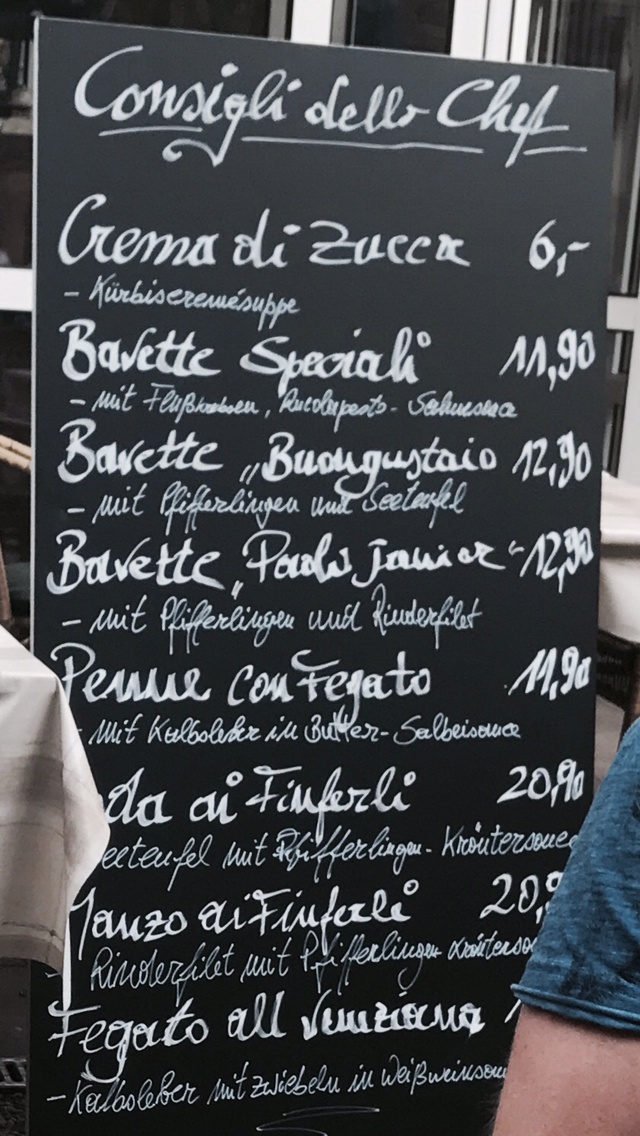 Consigli dello Chef
Crema di Zucca 6,-
- Kürbiscremesuppe
Bavette Speciali 11,90
- mit Flußkrebsen, Rucolapesto-
Bavette „Buongustaio 12,90
- mit Pfifferlingen und Seeteufel
Bavette „Paolo Junior“ 12,90
- mit Pfifferlingen und Rinderfilet
Penne con Fegato 11,90
- mit Kalbsleber in Butter-Salbeisauce
da ai Finferli 20,90
eeteufel mit Pfifferlingen-Kräutersauce
Manzo ai Finferli 20,9
- Rinderfilet mit Pfifferlingen Kräuterso
Fegato all Venziana 1
- Kalbsleber mit Zwiebeln in Weißweinsau